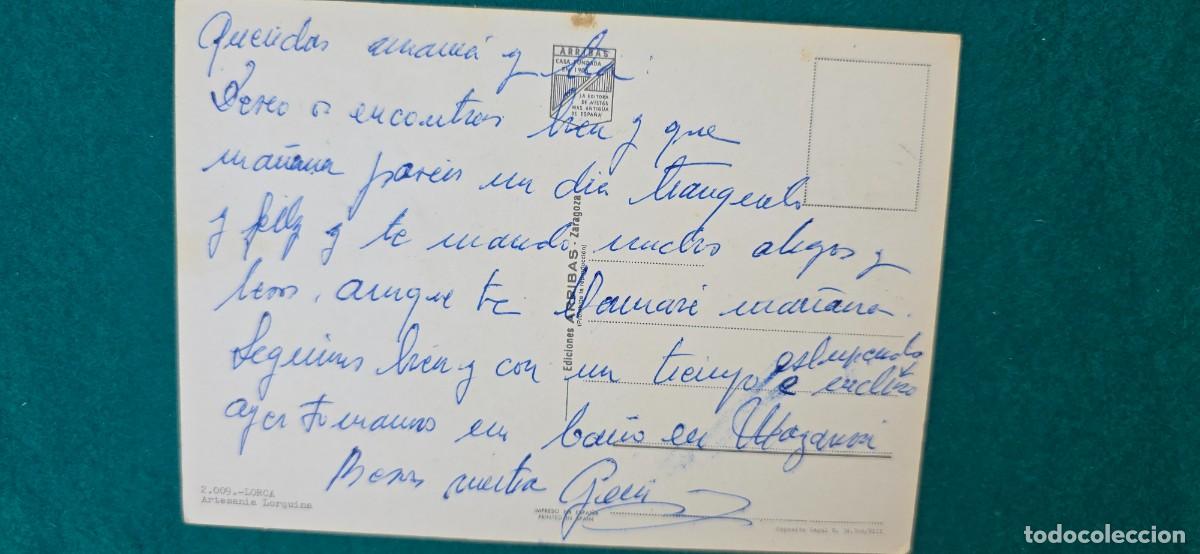 Queridas mamá y
ARRIBAS
CASA FUNDADA
LA EDITORA
DE VISTAS
MAS ANTIGUA
DE ESPAÑA
Deseo os encontreis bien y que
mañana paseis un dia tranquilo
y feliz y te mando mucho abrazos y
besos, aunque te llamaré mañana.
Seguimos bien y con un tiempo estupendo
e incluso
ayer tomamos un baño en Mazarron
Besos vuestra
Ediciones ARRIBAS - Zaragoza
(Prohibida la reproducción)
2.009.-LORCA
Artesanía Lorquina
IMPRESO EN ESPAÑA
PRINTED IN SPAIN
todocoleccion